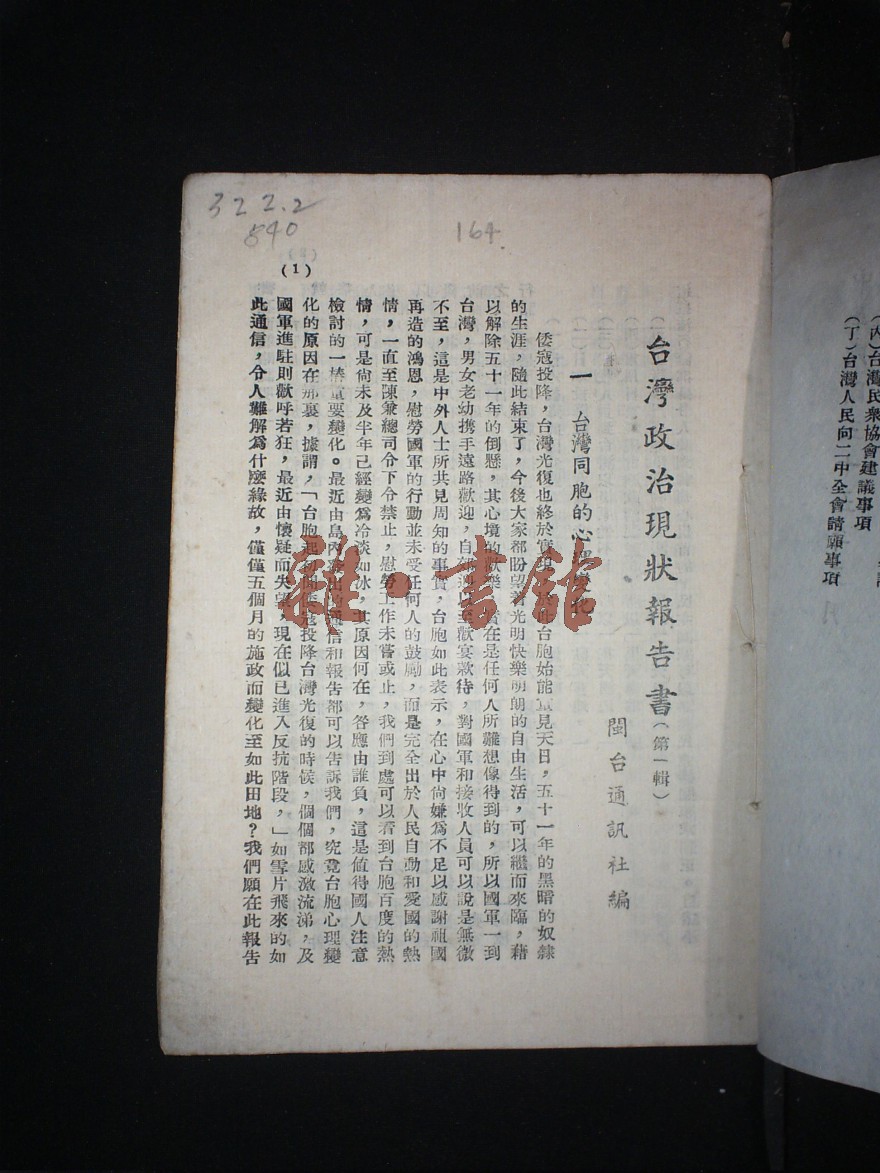 (丙)台灣民衆協會建議事項
(丁)台灣人民向二中全會請願事項
322.2
840
164
台灣政治現狀報告書(第一輯)
閩台通訊社編
一 台灣同胞的心理變化
倭寇投降,台灣光復也終於實現,台胞始能重見天日,五十一年的黑暗的奴隸
的生涯,隨此結束了,今後大家都盼望着光明快樂明朗的自由生活,可以繼而來臨,藉
以解除五十一年的倒懸,其心境的歡樂,實在是任何人所難想像得到的,所以國軍一到
台灣,男女老幼携手遠路歡迎,自郊迎以至歡宴欵待,對國軍和接收人員可以說是無微
不至,這是中外人士所共見周知的事實,台胞如此表示,在心中尙嫌爲不足以感謝祖國
再造的鴻恩,慰勞國軍的行動並未受任何人的鼓勵,而是完全出於人民自動和愛國的熱
情,一直至陳兼總司令下令禁止,慰勞工作未嘗或止,我們到處可以看到台胞百度的熱
情,可是尙未及半年已經變爲冷淡如冰,其原因何在,咎應由誰負,這是値得國人注意
檢討的一樁重要變化。最近由島內寄出的通信和報告都可以告訴我們,究竟台胞心理變
化的原因在那裏,據謂,「台胞起初聞倭寇投降台灣光復的時候,個個都感激流涕,及
國軍進駐則歡呼若狂,最近由懷疑而失望,現在似已進入反抗階段,」如雪片飛來的如
此通信,令人難解爲什麼緣故,僅僅五個月的施政而變化至如此田地?我們願在此報告
(1)
雜·書館